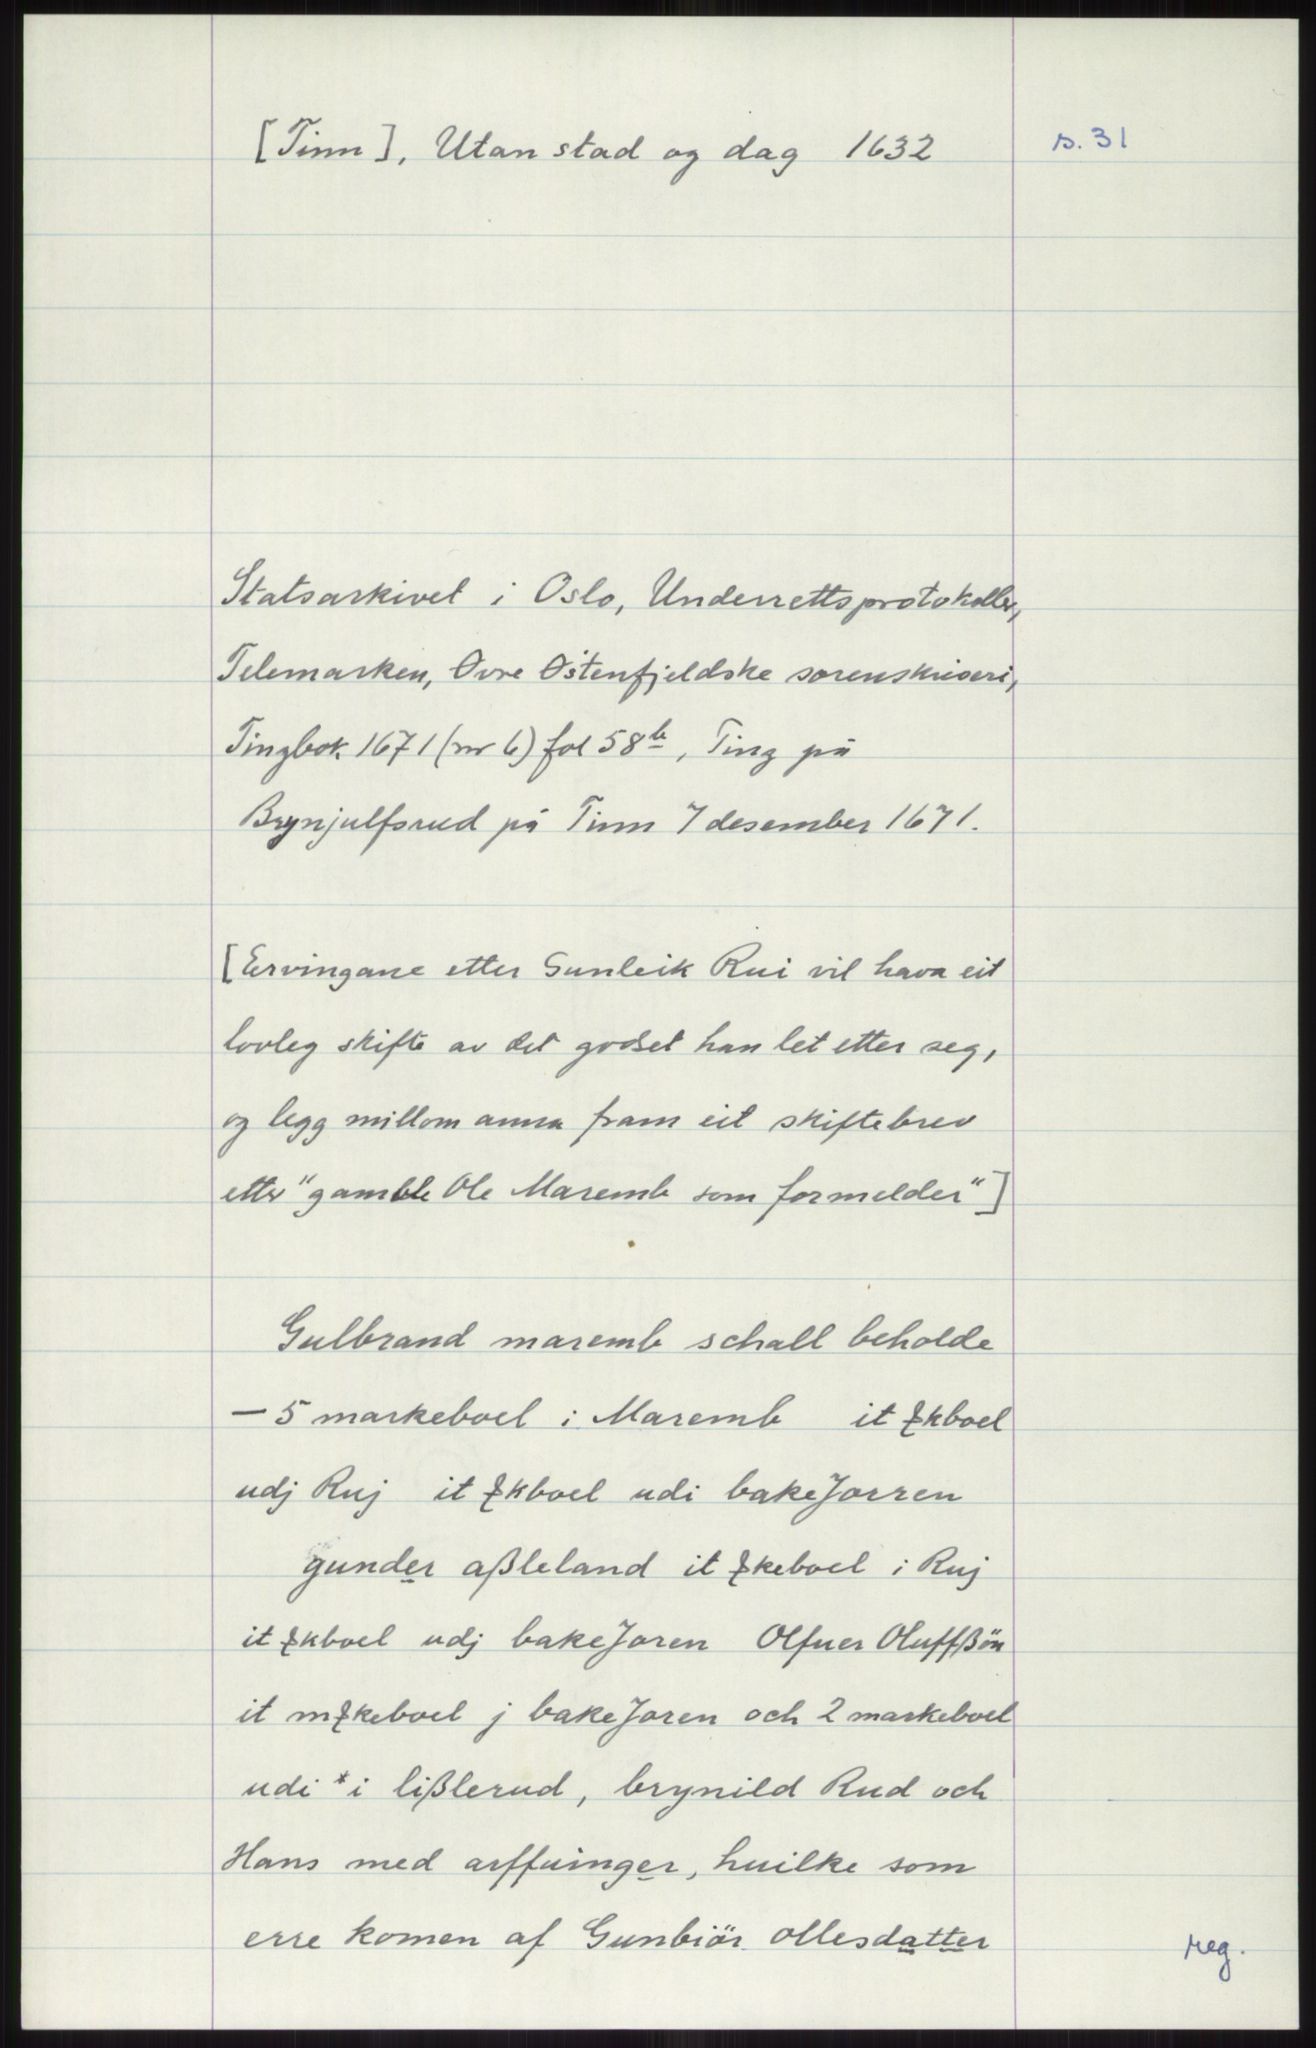 [Tinn], Utan stad og dag 1632
s. 31
Statsarkivet i Oslo, Underrettsprotokoller,
Telemarken, Øvre Østenfjeldske sorenskriveri,
Tingbok 1671 (nr 6) fol 58b, Ting på
Brynjulfsrud på Tinn 7 desember 1671.
[Ervingane etter Gunleik Rui vil hava eit
lovleg skifte av det godset han let etter seg,
og legg millom anna fram eit skiftebrev
etter "gamble Ole Maremb som formelder"]
Gulbrand maremb schall beholde
— 5 markeboel i Maremb it kboel
udj Ruj it kboel udi bakeJorren
gunder aßleland it keboel i Ruj
it kboel udj bakeJoren Olfuer Oluffßön
it m keboel j bakeJoren och 2 markeboel
udi * i lißlerud, brynild Rud och
Hans med arffuinger, huilke som
erre komen af Gunbiör ollesdatter
reg.